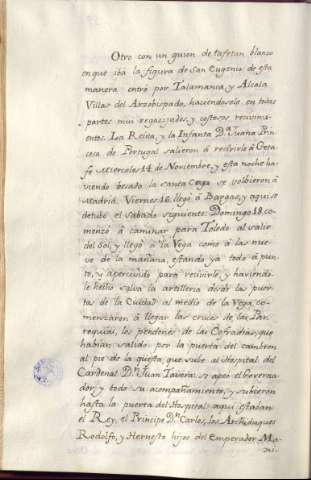 Otro con un guion de tafetan blanco
en que iba la figura de San Eugenio de esta
manera entró por Talamanca, y Alcala
Villas del Arzobispado, haciendosele en todas
partes mui regozijados, y costosos recivimi-
entos. La Reina, y la Infanta D.ª Juana Prin
cesa de Portugal salieron á recivirle á Geta
fe Miercoles 14 de Noviembre, y esta noche ha-
viendo besado la santa Caxa se volvieron á
Madrid. Viernes 16 llegó á Bargas, y aqui se
detubo el Sabado siguiente: Domingo 18 co-
menzó á caminar para Toledo al salir
del Sol, y llegó á la Vega como á las nue-
ve de la mañana, estando ya todo á pun-
to, y apercivido para recivirle, y haviendo-
le hecho salva la artilleria desde las puer-
tas de la Ciudad al medio de la Vega, co-
menzaron á llegar las cruces de las Par-
roquias, los pendones de las Cofradias, que
habian salido por la puerta del Cambron
al pie de la questa, que sube al Hospital del
Cardenal D.ⁿ Juan Tavera: se apeó el
y todo su acompañamiento, y subieron
hasta la puerta del Hospital: aqui estaban
el Rey, el Principe D.ⁿ Carlos, los Archiduques
Rodolfo, y Hernesto hijos del Emperador Ma-